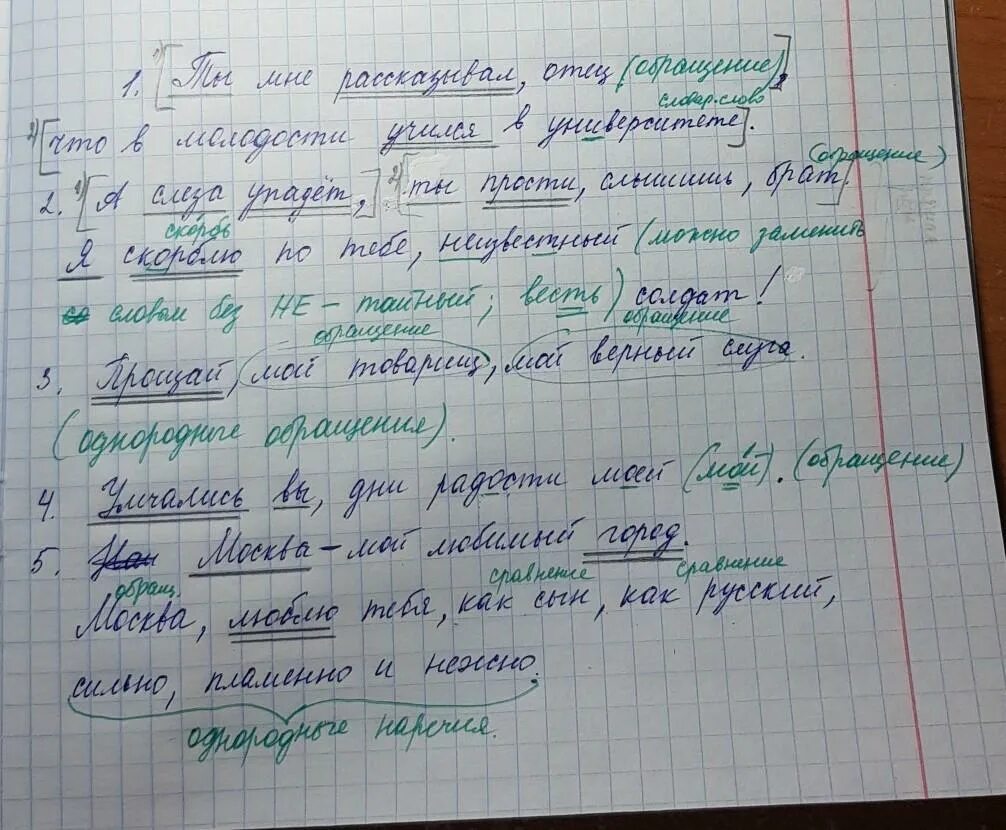 1. 1) [Ты мне рассказывал, отец (обращение)],
словар. слово
2) [что в молодости учился в университете].
(обращение)
2. 1) [А слеза упадёт,] 2) [ты прости, слышишь, брат].
скорбь
Я скорблю по тебе, неизвестный (можно заменить
словом без НЕ – тайный; весть) солдат!
обращение обращение
3. Прощай, мой товарищ, мой верный слуга.
(однородные обращения).
4. Умчались вы, дни радости моей (мой). (обращение)
5. Москва – мой любимый город.
обращ. сравнение сравнение
Москва, люблю тебя, как сын, как русский,
сильно, пламенно и нежно.
однородные наречия.